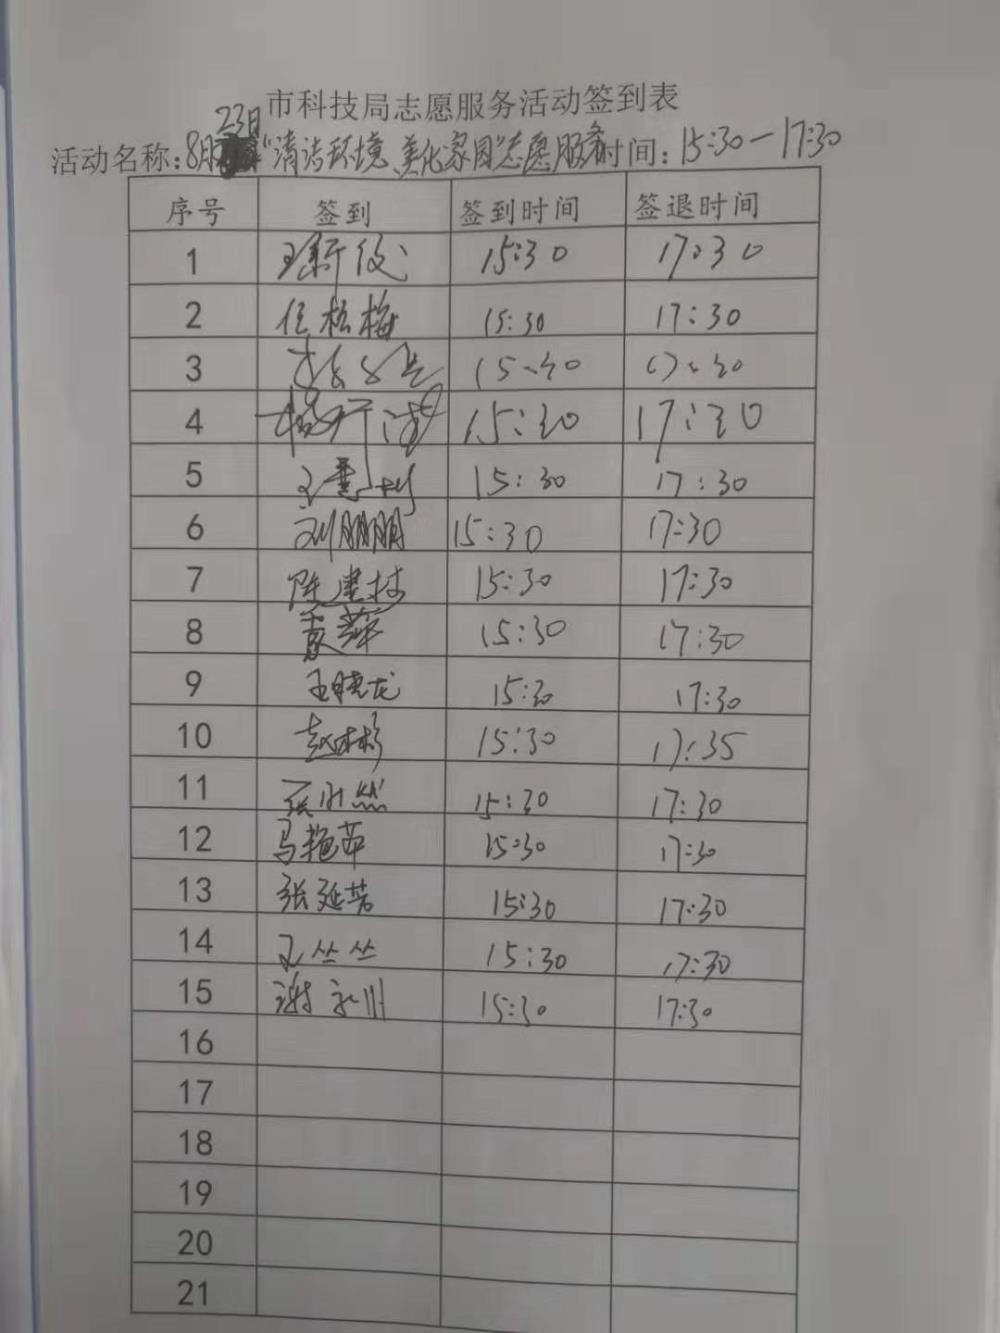 市科技局志愿服务活动签到表
活动名称:8月23日"清洁环境、美化家园"志愿服务时间:15:30-17:30
序号 签到 签到时间 签退时间
1 15:30 17:30
2 任松梅 15:30 17:30
3 15:30 17:30
4 15:30 17:30
5 15:30 17:30
6 刘朋朋 15:30 17:30
7 陈建村 15:30 17:30
8 夏萍 15:30 17:30
9 王晓龙 15:30 17:30
10 赵彬彬 15:30 17:35
11 15:30 17:30
12 马艳苹 15:30 17:30
13 张延芳 15:30 17:30
14 王丛丛 15:30 17:30
15 谢永州 15:30 17:30
16
17
18
19
20
21